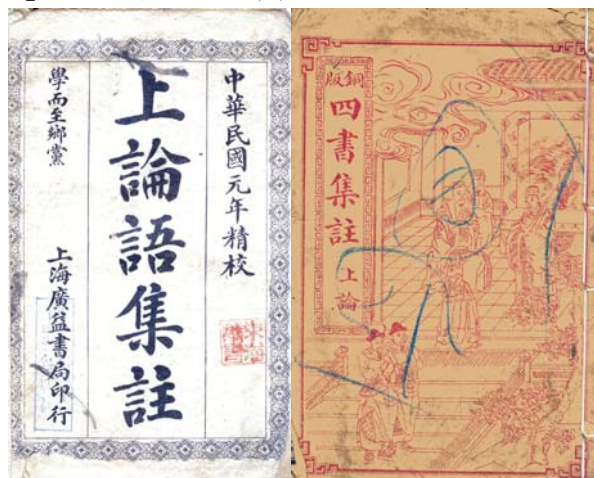 中華民國元年精校
上論語集註
學而至鄉黨
上海廣益書局印行
銅版
四書集註
上論